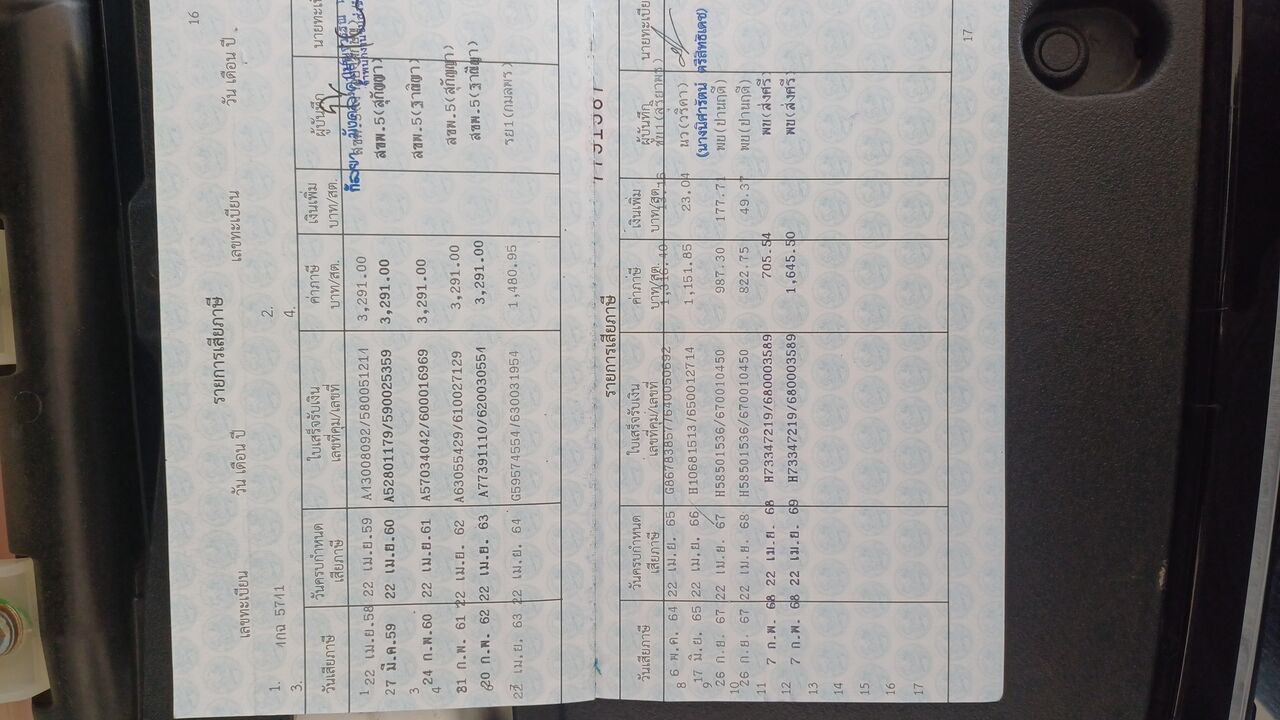 16
รายการเสียภาษี
เลขทะเบียน วัน เดือน ปี เลขทะเบียน วัน เดือน ปี
1. 1กฉ 5711 2.
3. 4.
วันเสียภาษี วันครบกำหนด เสียภาษี ใบเสร็จรับเงิน เลขที่คุม/เลขที่ ค่าภาษี บาท/สต. เงินเพิ่ม บาท/สต. ผู้บันทึก
1 22 เม.ย.58 22 เม.ย.59 A13008092/580051211 3,291.00
27 มี.ค.59 22 เม.ย.60 A52801179/590025359 3,291.00 สขพ.5(สุกัญญา)
3 24 ก.พ.60 22 เม.ย.61 A57034042/600016969 3,291.00 สขพ.5(ฐาณิญา)
4 ก.พ. 61 22 เม.ย. 62 A63055429/610027129 3,291.00 สขพ.5(สุกัญญา)
20 ก.พ. 62 22 เม.ย. 63 A77391110/620030554 3,291.00 สขพ.5(ฐาณิญา)
22 เม.ย. 63 22 เม.ย. 64 G59574554/630031954 1,480.95 รย1(กมลพร)
รายการเสียภาษี
วันเสียภาษี วันครบกำหนด เสียภาษี ใบเสร็จรับเงิน เลขที่คุม/เลขที่ ค่าภาษี บาท/สต. เงินเพิ่ม บาท/สต. ผู้บันทึก
8 6 พ.ค. 64 22 เม.ย. 65 G86783857/640050692
9 17 มิ.ย. 65 22 เม.ย. 66 H10681513/650012714 1,151.85 23.04 นว(วริศา)
(นางนิศารัตน์ ตรีสิทธิเดช)
10 26 ก.ย. 67 22 เม.ย. 67 H58501536/670010450 987.30 177.71 พย(ปานฤดี)
26 ก.ย. 67 22 เม.ย. 68 H58501536/670010450 822.75 49.37 พย(ปานฤดี)
11 7 ก.พ. 68 22 เม.ย. 68 H73347219/680003589 705.54 พย(ส่งศรี)
12 7 ก.พ. 68 22 เม.ย. 69 H73347219/680003589 1,645.50 พย(ส่งศรี)
13
14
15
16
17
17